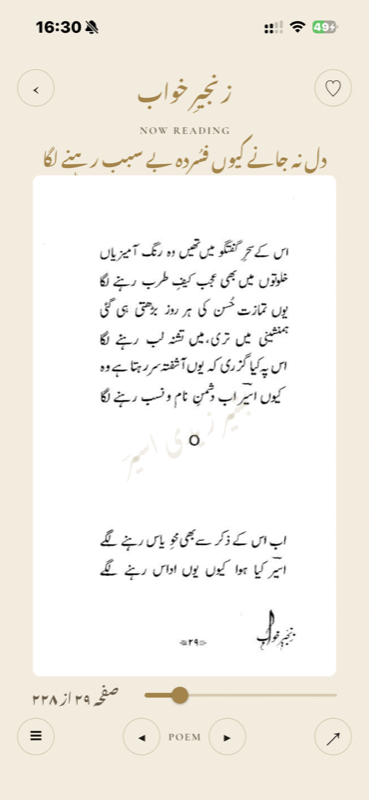 16:30
49
زنجیرِ خواب
NOW READING
دل نہ جانے کیوں فسُردہ بے سبب رہنے لگا
اس کے سحرِ گفتگو میں تھیں وہ رنگ آمیزیاں
خلوتوں میں بھی عجب کیفِ طرب رہنے لگا
یوں تمازت حُسن کی ہر روز بڑھتی ہی گئی
ہمنشینی میں تری، میں تشنہ لب رہنے لگا
اس پہ کیا گزری کہ یوں آشفتہ سر رہتا ہے وہ
کیوں اسیرؔ اب دشمنِ نام و نسب رہنے لگا
اب اس کے ذکر سے بھی محوِ یاس رہنے لگے
اسیرؔ کیا ہوا کیوں یوں اداس رہنے لگے
زنجیرِ خواب
۲۹
صفحہ ۲۹ از ۲۲۸
POEM